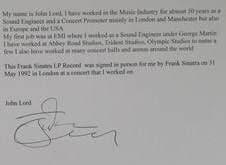 My name is John Lord, I have worked in the Music Industry for almost 50 years as a
Sound Engineer and a Concert Promoter mainly in London and Manchester but also
in Europe and the USA
My first job was at EMI where I worked as a Sound Engineer under George Martin
I have worked at Abbey Road Studios, Trident Studios, Olympic Studios to name a
few I also have worked at many concert halls and arenas around the world
This Frank Sinatra LP Record was signed in person for me by Frank Sinatra on 31
May 1992 in London at a concert that I worked on
John Lord